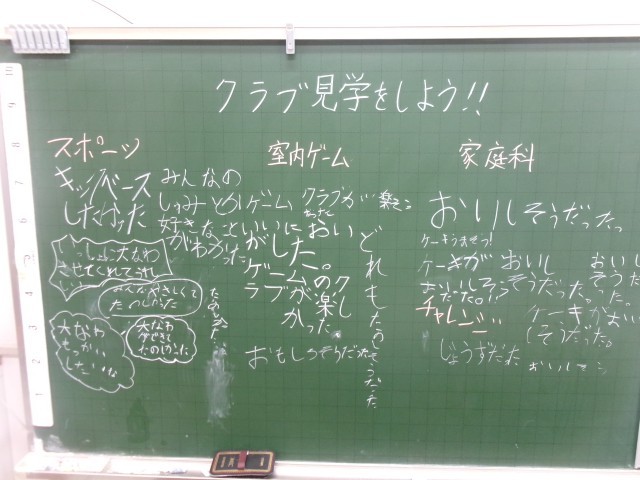 クラブ見学をしよう!!
スポーツ
キックベース
したかった
いっしょに大なわ
させてくれてうれし
みんなやさしくて
たのしかった
大なわ
もっかい
したいな
大なわ
できて
たのしかった
みんなの
しゅみとか
好きなことい
がわかった
室内ゲーム
ゲーム
クラブが
楽そう
いにおい
がした。
ゲームのク
ラブが楽し
かった
どれもたのしそうだった
おもしろそうだった
家庭科
おいしそうだったっ
ケーキうまそっ!
ケーキが
おいしそう
だった。
おいし
そうだった。
チャレンジ
ケーキがおい
しそうだった。
じょうずだった
おいしそう